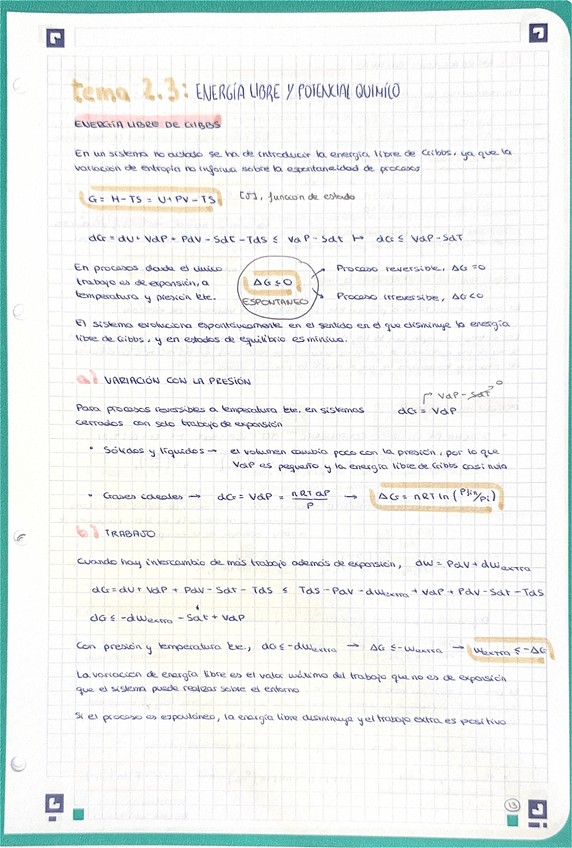 tema 2.3: ENERGÍA LIBRE Y POTENCIAL QUÍMICO
ENERGÍA LIBRE DE GIBBS
En un sistema no aislado se ha de introducir la energía libre de Gibbs, ya que la
variación de entropía no informa sobre la espontaneidad de procesos
G = H - TS = U + PV - TS [J], función de estado
dG = dU + VdP + PdV - SdT - TdS ≤ VdP - SdT ↦ dG ≤ VdP - SdT
En procesos donde el único
trabajo es de expansión, a
temperatura y presión kte.
ΔG ≤ 0
ESPONTÁNEO
Proceso reversible, ΔG = 0
Proceso irreversible, ΔG < 0
El sistema evoluciona espontáneamente en el sentido en el que disminuye la energía
libre de Gibbs, y en estados de equilibrio es mínima.
a) VARIACIÓN CON LA PRESIÓN
VdP - SdT → 0
Para procesos reversibles a temperatura kte. en sistemas dG = VdP
cerrados con solo trabajo de expansión
• Sólidos y líquidos → el volumen cambia poco con la presión, por lo que
VdP es pequeño y la energía libre de Gibbs casi nula
• Gases ideales → dG = VdP = nRTdP / P → ΔG = nRT ln (Pfin/Pi)
b) TRABAJO
Cuando hay intercambio de más trabajo además de expansión, dW = PdV + dWextra
dG = dU + VdP + PdV - SdT - TdS ≤ TdS - PdV - dWextra + VdP + PdV - SdT - TdS
dG ≤ -dWextra - SdT + VdP
Con presión y temperatura kte., dG ≤ -dWextra → ΔG ≤ -Wextra → Wextra ≤ -ΔG
La variación de energía libre es el valor máximo del trabajo que no es de expansión
que el sistema puede realizar sobre el entorno
Si el proceso es espontáneo, la energía libre disminuye y el trabajo extra es positivo
13